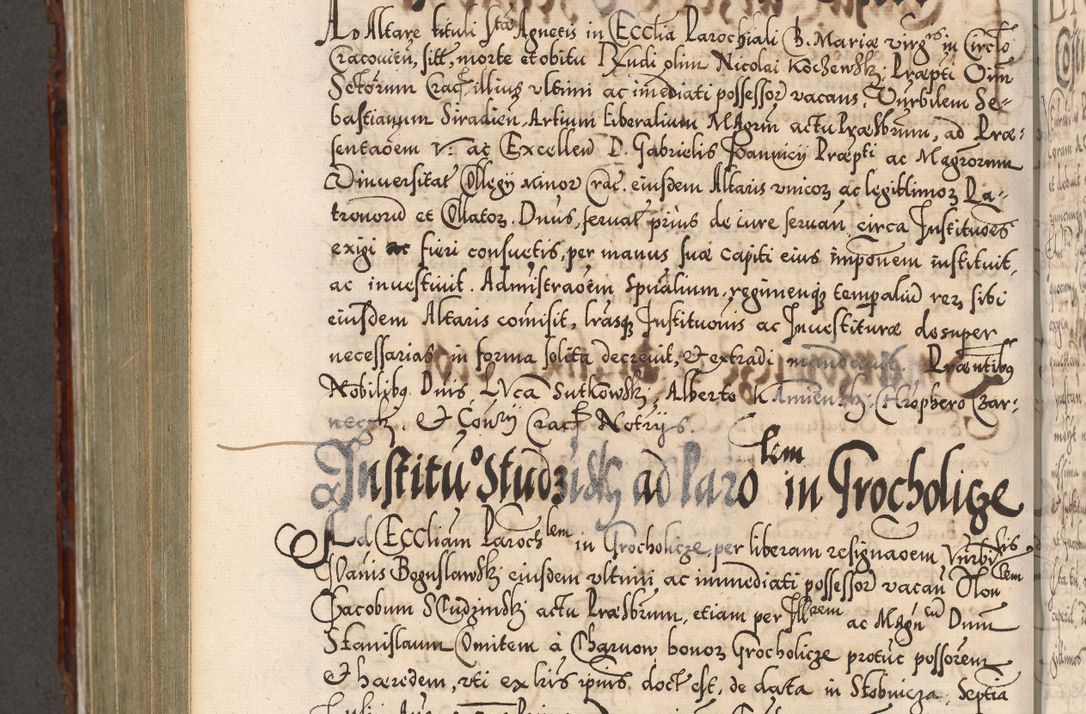 Ad Altare tituli Stæ Agnetis in Ecclia Parochiali B. Mariæ virgis in Circlo
Cracovien, sitt, morte et obitu Rndi olim Nicolai Kochewskj Præpti Oim
Sctorum Crac illius vltimi ac imediati possessor vacans, Vnrbilem Se-
bastianum Siradien, Artium Liberalium Mgrm actu Præsbrum, ad Præ:
sentaoem V. ac Excellen D. Gabrielis Joannicij Præpti ac Magrorum
Vniuersitat Collegij Minor Crac. eiusdem Altaris vnicoꝝ ac legittimoꝝ Pa-
tronorū et Collatoꝝ. Dnus, seruat prius de iure seruan, circa Instituoēs
exigi ac fieri consuetis, per manus suæ capiti eius imponem instituit,
ac inuestiuit. Admistraoem Spūalium, regimenqȝ temporaliū reꝝ sibi
eiusdem Altaris comisit, lrasqȝ Instituonis ac Inuestituræ desuper
necessarias in forma solita decreuit, & extradi mandauit. Præntibȝ
Nobilibȝ Dnis, Lvca Sutkowskj, Alberto Kamienskj Chrophero Czar-
neckj. & Coürij Crac Notrijs.
Institu° Studzinskj ad Parolem in Grocholicze
Ad Eccliam Parochlem in Grocholicze, per liberam resignaoem, Vnrbilis
Joanis Boguslawskj eiusdem vltimi ac immediati possessor vacan Hon lem
Jacobum Studzinskj actu Præsbrum, etiam per Illrem ac Magncum Dnum
Stanislaum Comitem à Tharnow bonoꝝ Grocholicze protuc possorem
& hæredem, vti ex lris ipius doct est, de data in Stobnicza. Septia